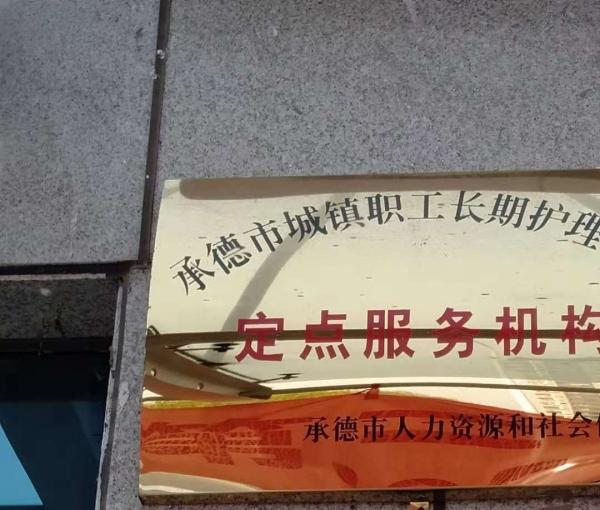 承德市城镇职工长期护理
定点服务机构
承德市人力资源和社会